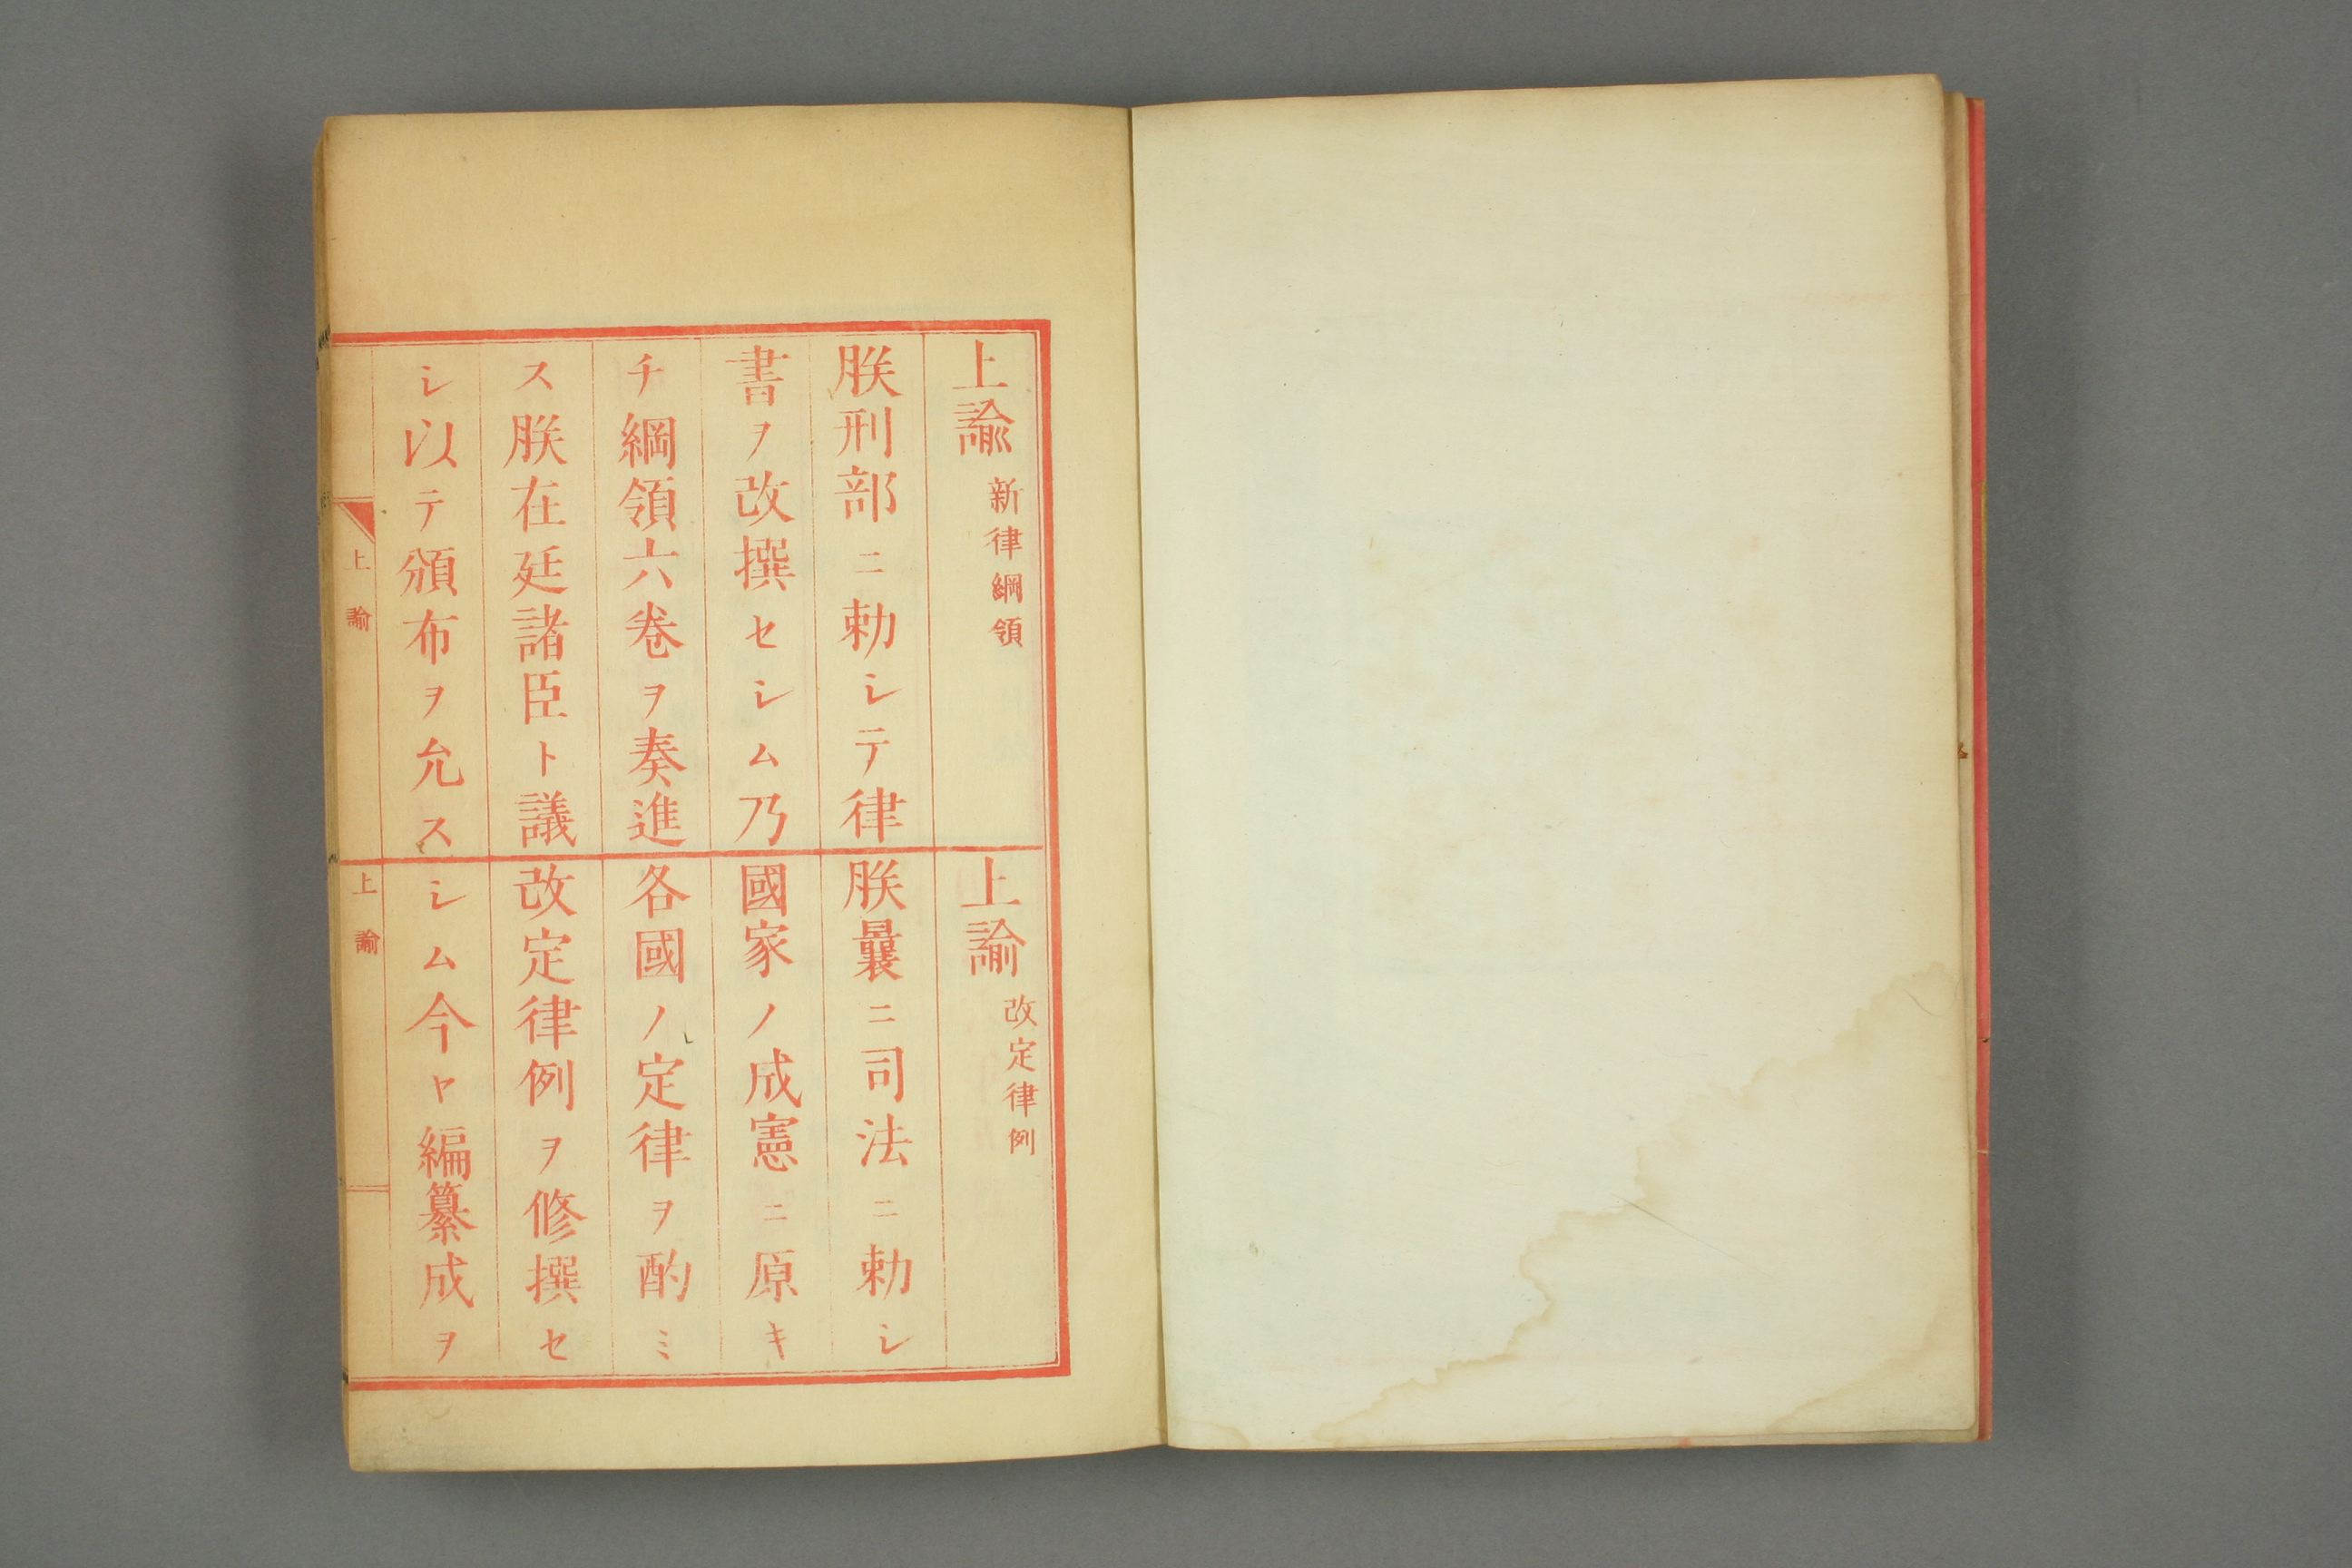 上諭 新律綱領
朕刑部ニ勅シテ律
書ヲ改撰セシム乃
チ綱領六卷ヲ奏進
ス朕在廷諸臣ト議
シ以テ頒布ヲ允ス
上諭
上諭 改定律例
朕曩ニ司法ニ勅シ
國家ノ成憲ニ原キ
各國ノ定律ヲ酌ミ
改定律例ヲ修撰セ
シム今ヤ編纂成ヲ
上諭